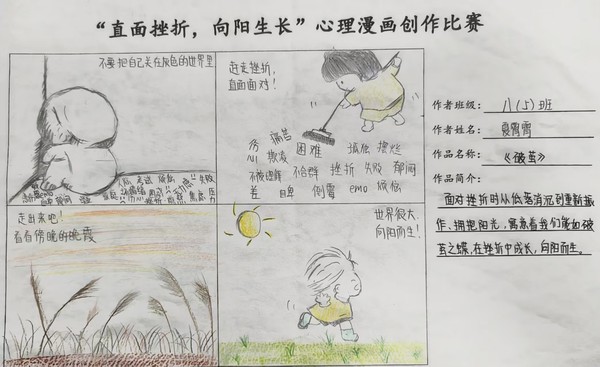 “直面挫折，向阳生长”心理漫画创作比赛
不要把自己关在灰色的世界里
赶走挫折，
直面面对！
痛苦 困难 孤独 摆烂
伤心 颓废
不被理解 不合群 挫折 失败 郁闷
差 自卑 倒霉 emo 烦恼
走出来吧！
看看傍晚的晚霞
世界很大，
向阳而生！
作者班级：八（5）班
作者姓名：
作品名称：《破茧》
作品简介：
面对挫折时从低落消沉到重新振
作、拥抱阳光，寓意着我们能如破
茧之蝶，在挫折中成长，向阳而生。